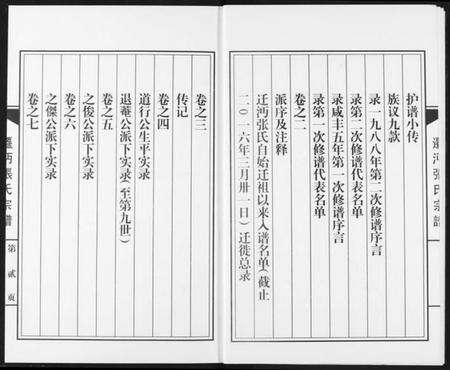 护谱小传
族议九款
录一九八八年第二次修谱序言
录第二次修谱代表名单
录咸丰五年第一次修谱序言
录第一次修谱代表名单
卷之二
派序及注释
迁沔张氏自始迁祖以来入谱名单(截止
二〇一六年三月卅一日)迁徙总录
卷之三
传记
卷之四
道行公生平实录
退菴公派下实录(至第九世)
卷之五
之俊公派下实录
卷之六
之傑公派下实录
卷之七
遷沔張氏宗譜
第贰页